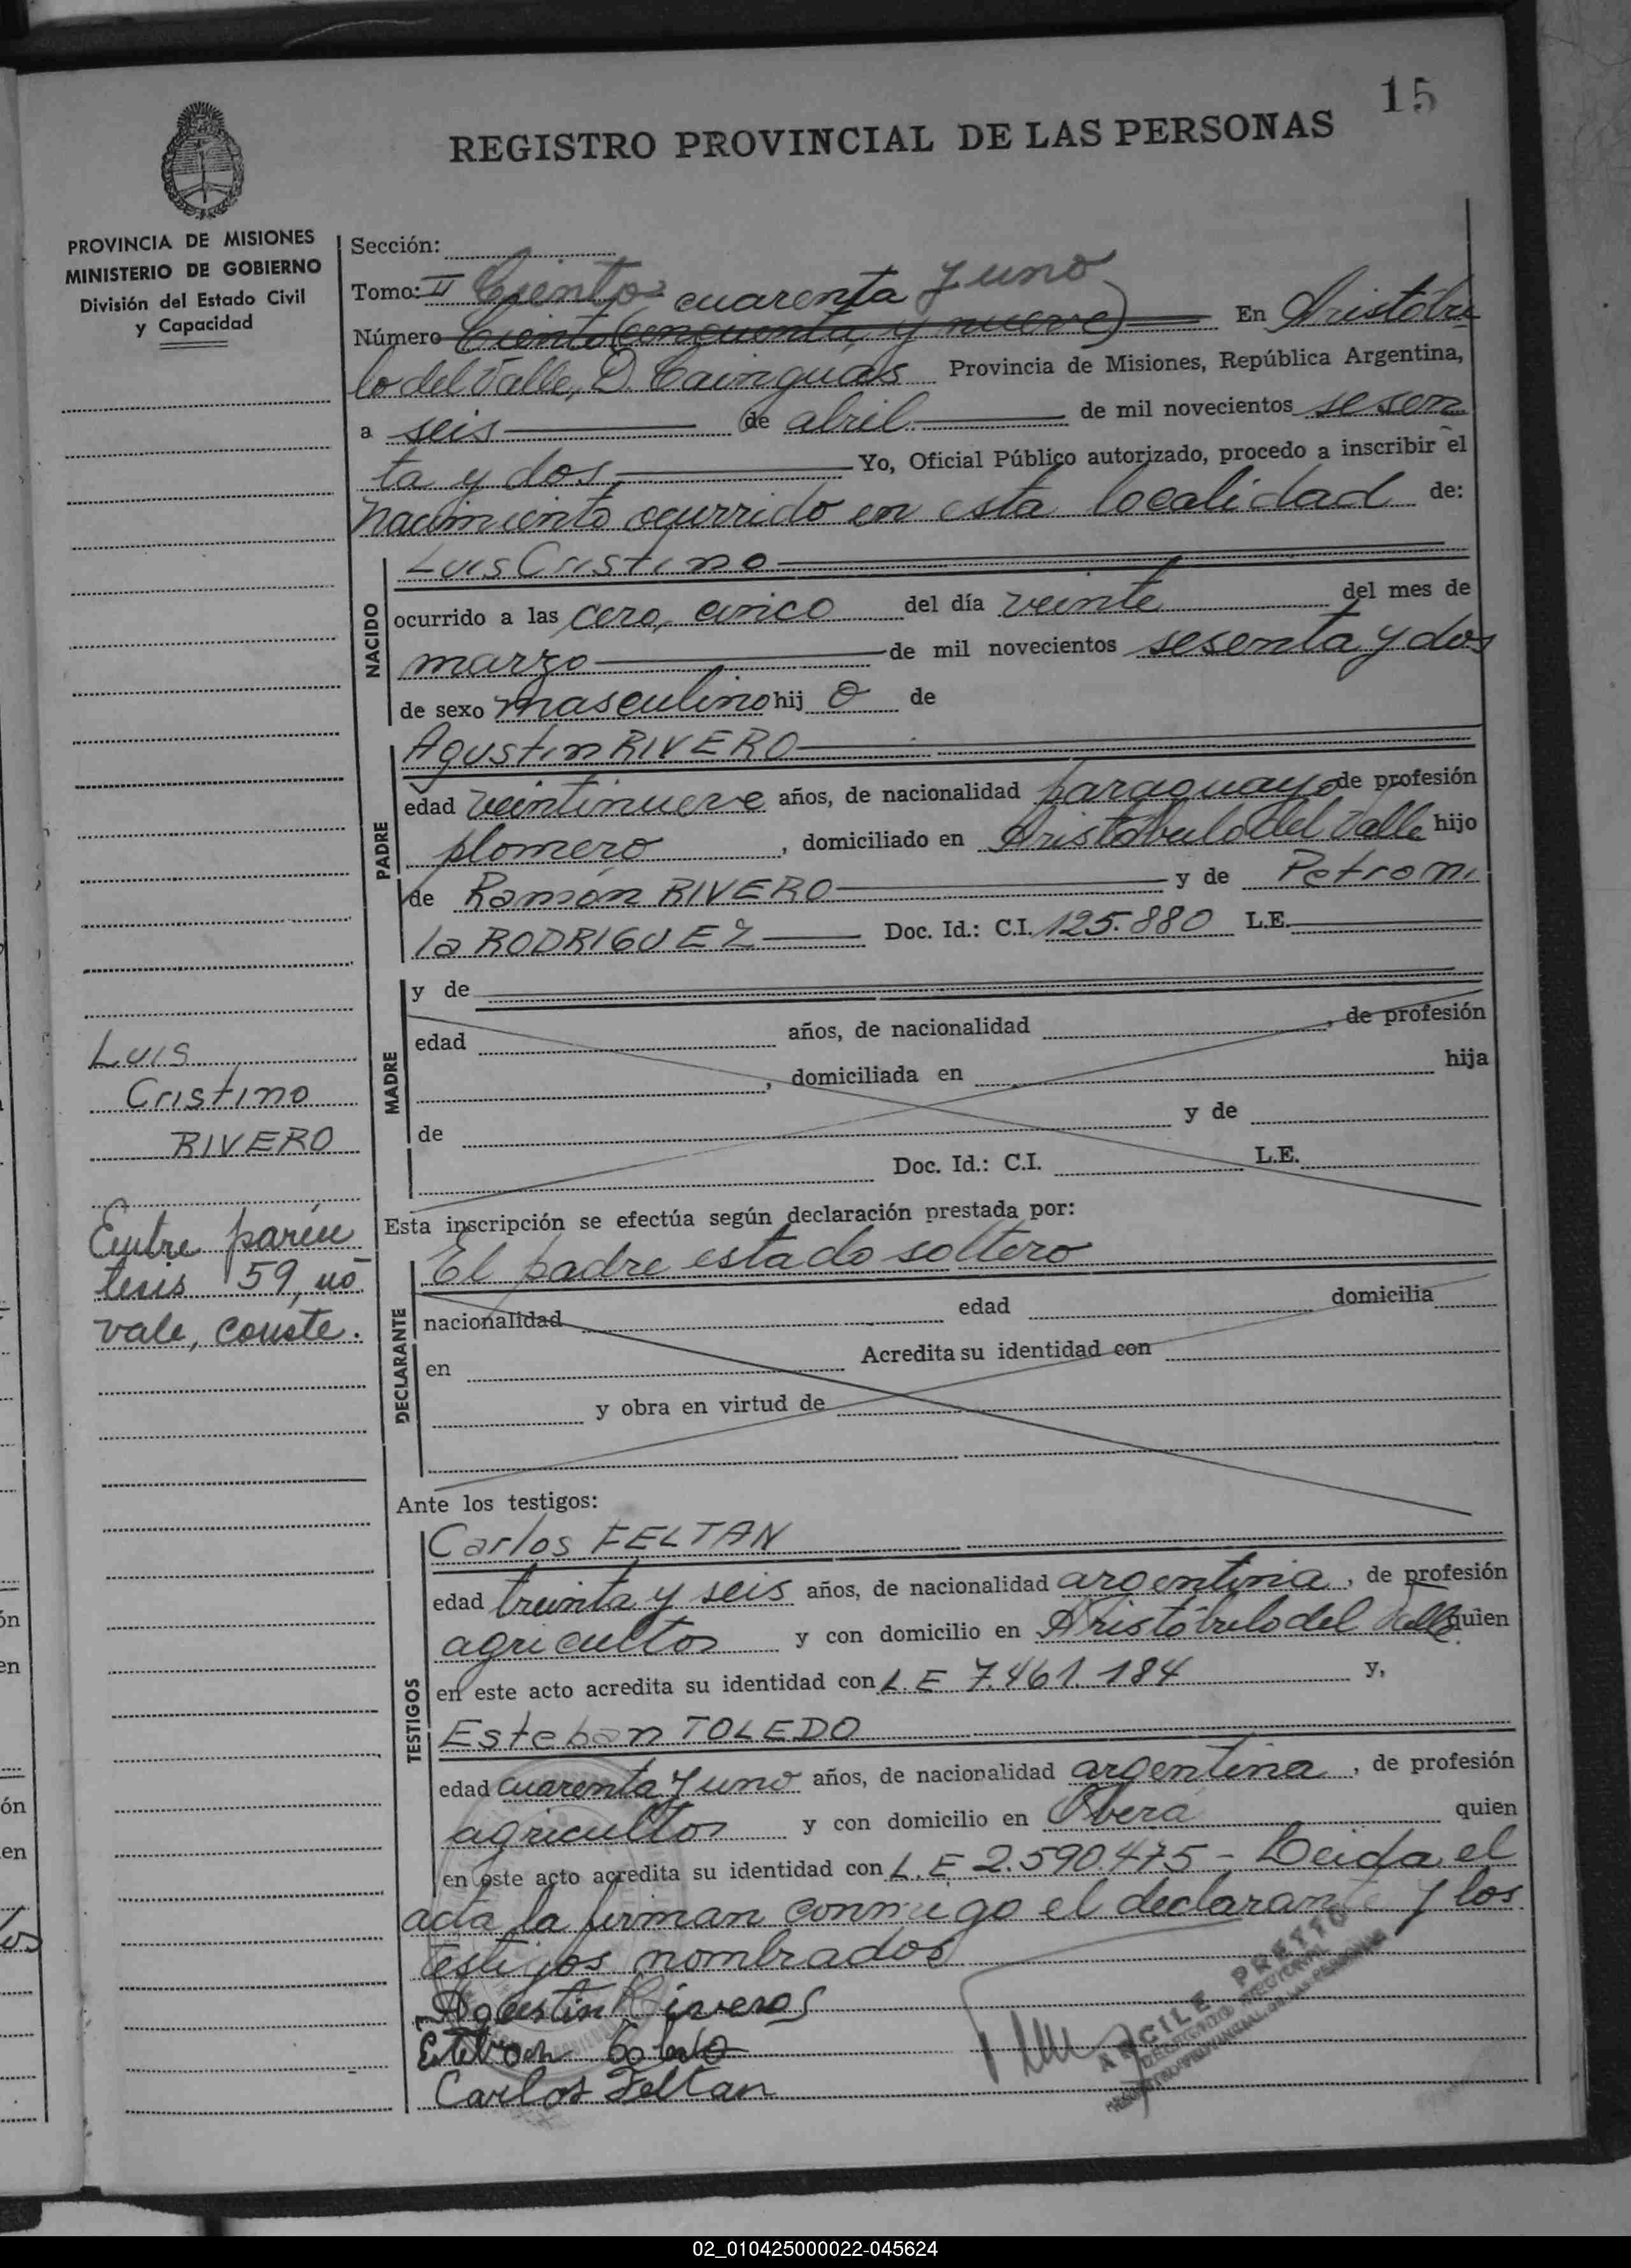 15
REGISTRO PROVINCIAL DE LAS PERSONAS
PROVINCIA DE MISIONES
MINISTERIO DE GOBIERNO
División del Estado Civil
y Capacidad
Sección:
Tomo: II Ciento cuarenta y uno
Número Ciento (cincuenta y nueve) En Aristóbu
lo del Valle, D. Cainguás Provincia de Misiones, República Argentina,
a seis de abril de mil novecientos sesen
ta y dos Yo, Oficial Público autorizado, procedo a inscribir el
nacimiento ocurrido en esta localidad de:
NACIDO
Luis Cristino
ocurrido a las cero, cinco del día veinte del mes de
marzo de mil novecientos sesenta y dos
de sexo masculino hij o de
PADRE
Agustin RIVERO
edad veintinueve años, de nacionalidad paraguayo de profesión
plomero, domiciliado en Aristóbulo del Valle hijo
de Ramón RIVERO y de Petroni
la RODRIGUEZ Doc. Id.: C.I. 125.880 L.E.
MADRE
y de
edad años, de nacionalidad , de profesión
, domiciliada en hija
de y de
Doc. Id.: C.I. L.E.
Luis
Cristino
RIVERO
Entre parén
tesis 59, no
vale, conste.
Esta inscripción se efectúa según declaración prestada por:
DECLARANTE
El padre estado soltero
nacionalidad edad domicilia
en Acredita su identidad con
y obra en virtud de
Ante los testigos:
TESTIGOS
Carlos FELTAN
edad treinta y seis años, de nacionalidad argentina, de profesión
agricultor y con domicilio en Aristóbulo del Valle quien
en este acto acredita su identidad con L. E 7.461.184 y,
Esteban TOLEDO
edad cuarenta y uno años, de nacionalidad argentina, de profesión
agricultor y con domicilio en Oberá quien
en este acto acredita su identidad con L. E 2.590.475 - Leida el
acta la firman conmigo el declarante y los
testigos nombrados
Agustin Riveros
Esteban Toledo
Carlos Feltan
ARCILE PRETTO
REGISTRO PROVINCIAL DE LAS PERSONAS
02_010425000022-045624